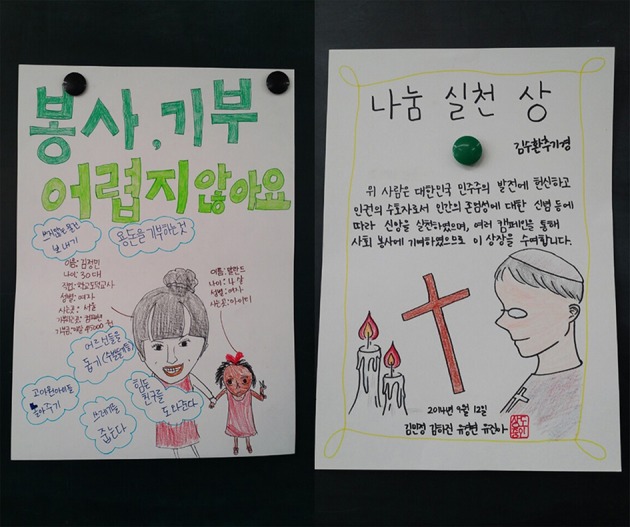 봉사, 기부
어렵지 않아요
보내기
용돈을 기부하는것
이름: 김정민
나이: 30대
직업: 학교도덕교사
성별: 여자
사는곳: 서울
기부하는곳:
45000원
나이: 4살
성별: 여자
사는곳: 아이티
어르신들을
돕기
고아원아이들
놀아주기
쓰레기를
줍는다
힘든
친구를 도와준다
나눔 실천 상
김수환추기경
위 사람은 대한민국 민주주의 발전에 헌신하고
인권의 수호자로서 인간의 존엄성에 대한 신념 등에
따라 신앙을 실천하였으며, 여러 캠페인을 통해
사회 봉사에 기여하였으므로 이 상장을 수여합니다.
2014년 9월 12일
김민경 김하진 유경현 유진아